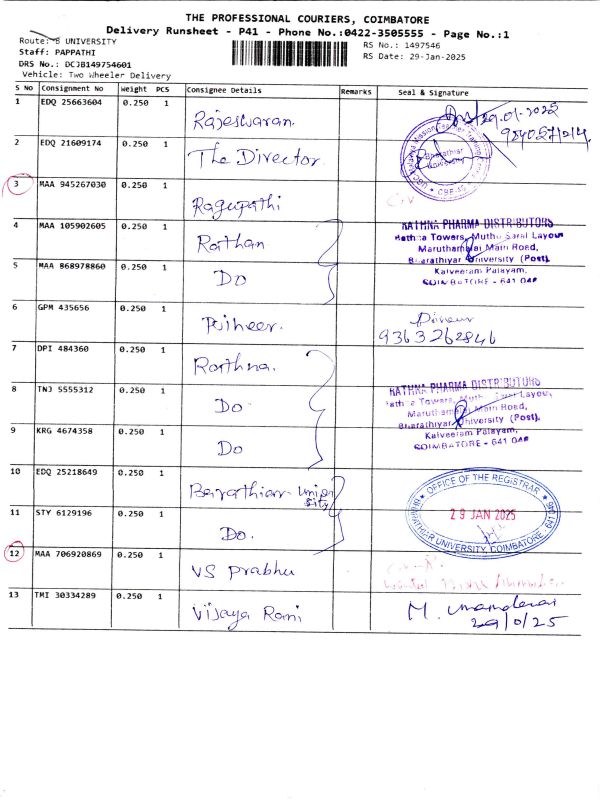 THE PROFESSIONAL COURIERS, COIMBATORE
Delivery Runsheet - P41 - Phone No.:0422-3505555 - Page No.:1
Route: B UNIVERSITY
RS No.: 1497546
Staff: PAPPATHI
RS Date: 29-Jan-2025
DRS No.: DCJB149754601
Vehicle: Two Wheeler Delivery
S No Consignment No Weight PCS Consignee Details Remarks Seal & Signature
1 EDQ 25663604 0.250 1 Rajeswaran. 29.01.2025
2 EDQ 21609174 0.250 1 The Director. Bharathiar University
3 MAA 945267030 0.250 1 Ragupathi
4 MAA 105902605 0.250 1 Rathan
RATHNA PHARMA DISTRIBUTORS
Rathna Towers, Muthu Saral Layout
Maruthamalai Main Road,
5 MAA 868978860 0.250 1 Do
Bharathiyar University (Post).
Kalveeram Palayam,
COIMBATORE - 641 046
6 GPM 435656 0.250 1
9363262846
7 DPI 484360 0.250 1 Rathna.
8 TNJ 5555312 0.250 1 Do
RATHNA PHARMA DISTRIBUTORS
Rathna Towers, Muthu Saral Layout,
Maruthamalai Main Road,
Bharathiyar University (Post).
9 KRG 4674358 0.250 1 Do
Kalveeram Palayam,
COIMBATORE - 641 046
10 EDQ 25218649 0.250 1 Barathiar University
OFFICE OF THE REGISTRAR
29 JAN 2025
BHARATHIAR UNIVERSITY, COIMBATORE - 641 046
11 STY 6129196 0.250 1 Do.
12 MAA 706920869 0.250 1 VS Prabhu
13 TMI 30334289 0.250 1 Vijaya Rani M.
29/0/25